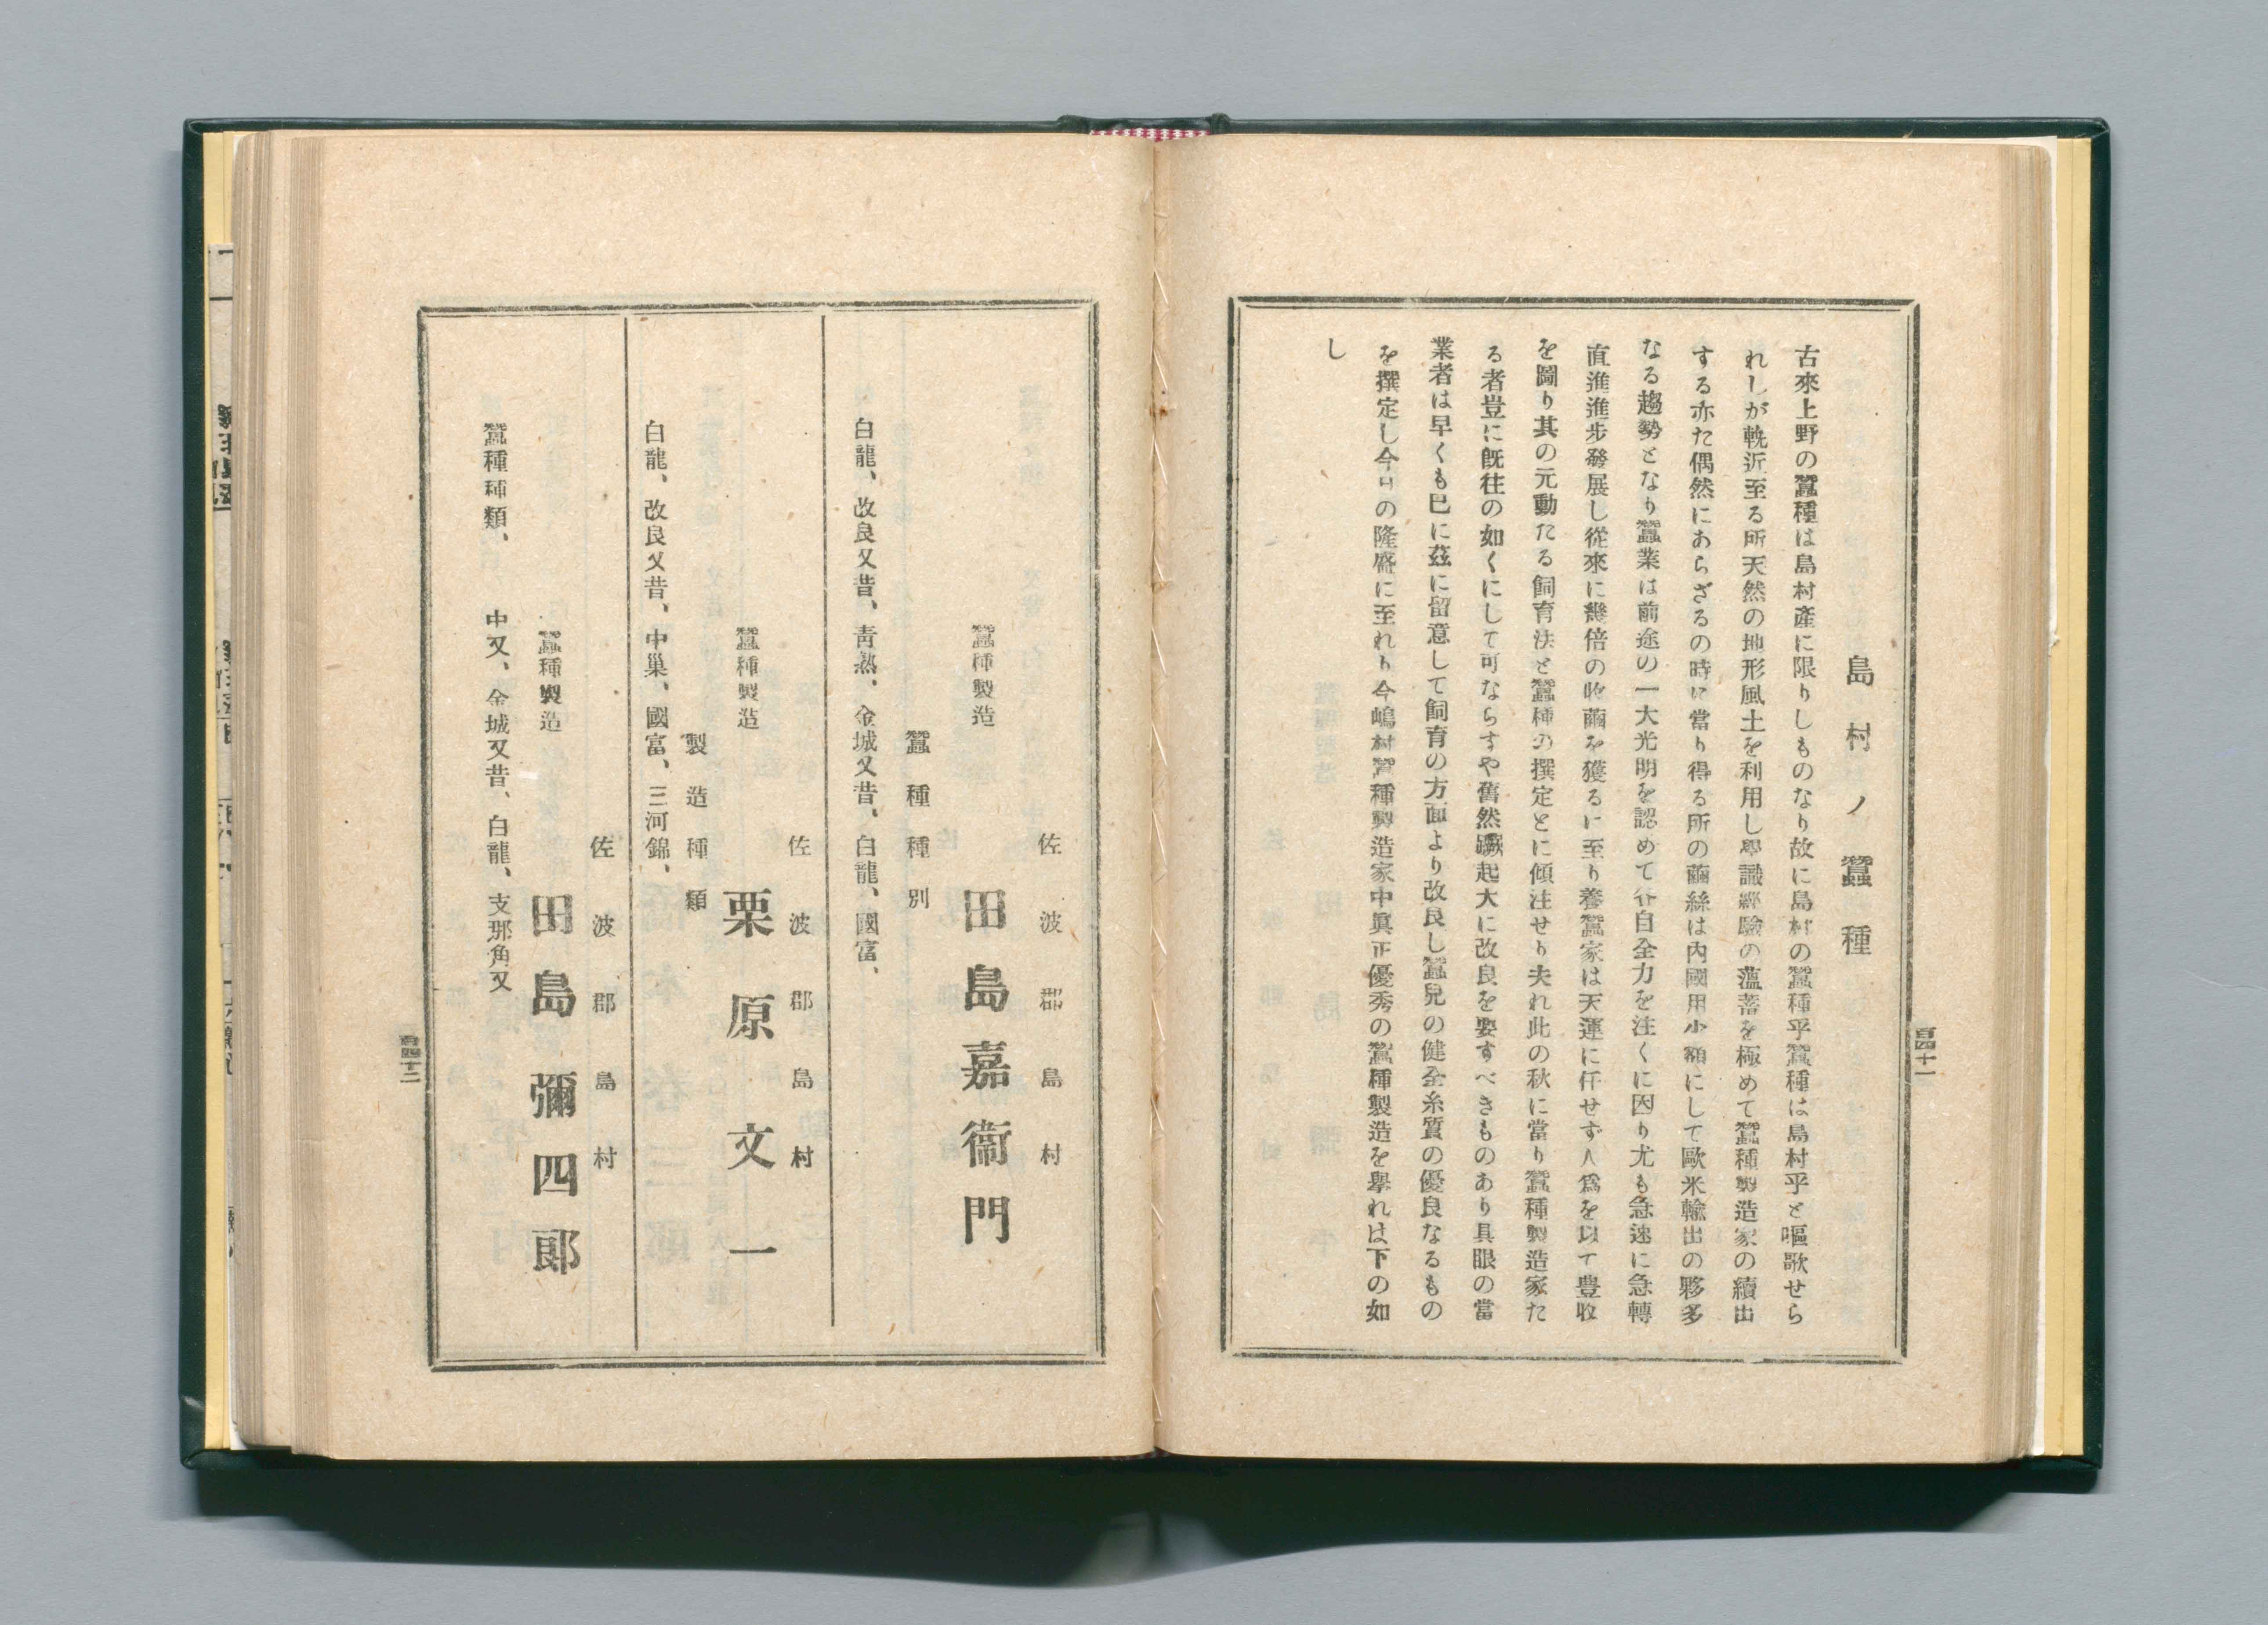 島村ノ蠶種
古來上野の蠶種は島村產に限りしものなり故に島村の蠶種乎蠶種は島村乎と嘔歌せら
れしが輓近至る所天然の地形風土を利用し學識經驗の薀蓄を極めて蠶種製造家の續出
する亦た偶然にあらざるの時に當り得る所の繭絲は內國用小額にして歐米輸出の夥多
なる趨勢となり蠶業は前途の一大光明を認めて各自全力を注くに因り尤も急速に急轉
直進進步發展し從來に幾倍の收繭を獲るに至り養蠶家は天運に任せず人爲を以て豊收
を圖り其の元動たる飼育法と蠶種の撰定とに傾注せり夫れ此の秋に當り蠶種製造家た
る者豈に旣往の如くにして可ならすや舊然蹶起大に改良を要すべきものあり具眼の當
業者は早くも巳に茲に留意して飼育の方面より改良し蠶兒の健全糸質の優良なるもの
を撰定し今日の隆盛に至れり今嶋村蠶種製造家中眞正優秀の蠶種製造を擧れは下の如
し
百四十一
佐波郡島村
蠶種製造 田島嘉衞門
蠶種種別
白龍、改良又昔、靑熟、金城又昔、白龍、國富、
佐波郡島村
蠶種製造 栗原文一
製造種類
白龍、改良又昔、中巢、國富、三河錦、
佐波郡島村
蠶種製造 田島彌四郎
蠶種種類、中又、金城又昔、白龍、支那角又
百四十二